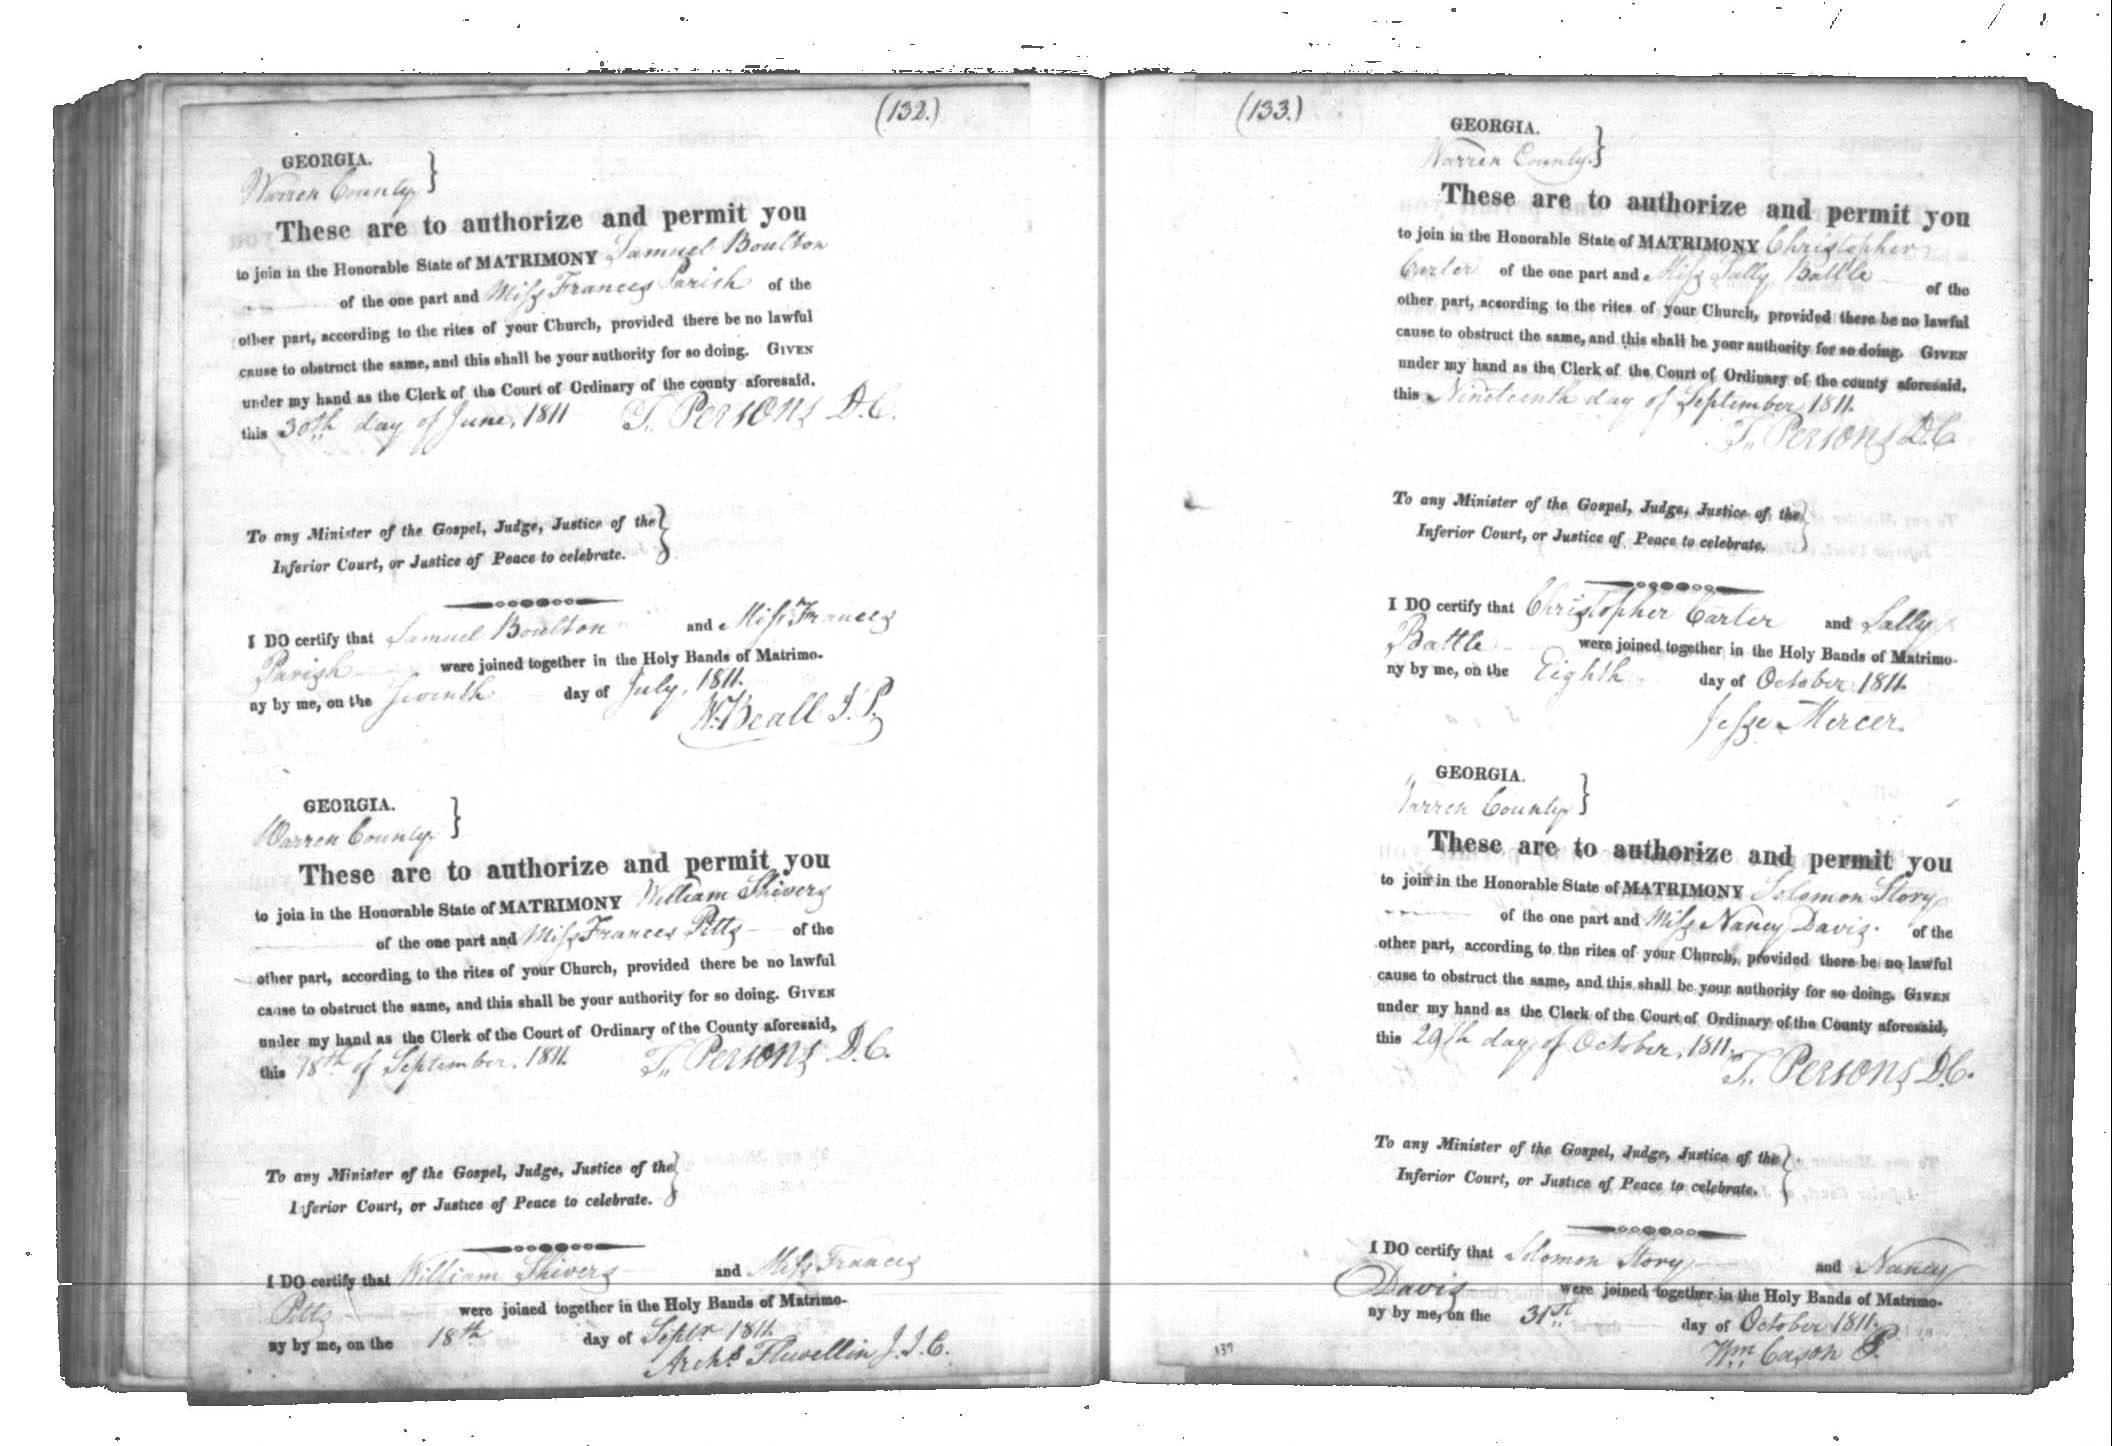 (132.)
GEORGIA. }
Warren County
These are to authorize and permit you
to join in the Honorable State of MATRIMONY Samuel Boulton
of the one part and Miss Frances Parish of the
other part, according to the rites of your Church, provided there be no lawful
cause to obstruct the same, and this shall be your authority for so doing. GIVEN
under my hand as the Clerk of the Court of Ordinary of the county aforesaid.
this 30th day of June, 1811 T. Persons D.C.
To any Minister of the Gospel, Judge, Justice of the }
Inferior Court, or Justice of Peace to celebrate.
I DO certify that Samuel Boulton and Miss Frances
Parish were joined together in the Holy Bands of Matrimo-
ny by me, on the Seventh day of July, 1811.
W. Beall J.P.
GEORGIA. }
Warren County
These are to authorize and permit you
to join in the Honorable State of MATRIMONY William Shivers
of the one part and Miss Frances Pitts of the
other part, according to the rites of your Church, provided there be no lawful
cause to obstruct the same, and this shall be your authority for so doing. GIVEN
under my hand as the Clerk of the Court of Ordinary of the County aforesaid,
this 18th of September, 1811. T. Persons D.C.
To any Minister of the Gospel, Judge, Justice of the }
Inferior Court, or Justice of Peace to celebrate.
I DO certify that William Shivers and Miss Frances
Pitts were joined together in the Holy Bands of Matrimo-
ny by me, on the 18th day of Septr 1811.
Archd. Flewellin J.I.C.
(133.)
GEORGIA. }
Warren County.
These are to authorize and permit you
to join in the Honorable State of MATRIMONY Christopher
Carter of the one part and Miss Sally Battle of the
other part, according to the rites of your Church, provided there be no lawful
cause to obstruct the same, and this shall be your authority for so doing. GIVEN
under my hand as the Clerk of the Court of Ordinary of the county aforesaid,
this Nineteenth day of September 1811.
T. Persons D.C
To any Minister of the Gospel, Judge, Justice of the }
Inferior Court, or Justice of Peace to celebrate.
I DO certify that Christopher Carter and Sally
Battle were joined together in the Holy Bands of Matrimo-
ny by me, on the Eighth day of October 1811.
Jesse Mercer.
GEORGIA. }
Warren County
These are to authorize and permit you
to join in the Honorable State of MATRIMONY Solomon Story
of the one part and Miss Nancy Davis. of the
other part, according to the rites of your Church, provided there be no lawful
cause to obstruct the same, and this shall be your authority for so doing. GIVEN
under my hand as the Clerk of the Court of Ordinary of the County aforesaid,
this 29th day of October, 1811.
T. Persons D.C.
To any Minister of the Gospel, Judge, Justice of the }
Inferior Court, or Justice of Peace to celebrate.
I DO certify that Solomon Story and Nancy
Davis were joined together in the Holy Bands of Matrimo-
ny by me, on the 31st day of October 1811.
Wm Cason